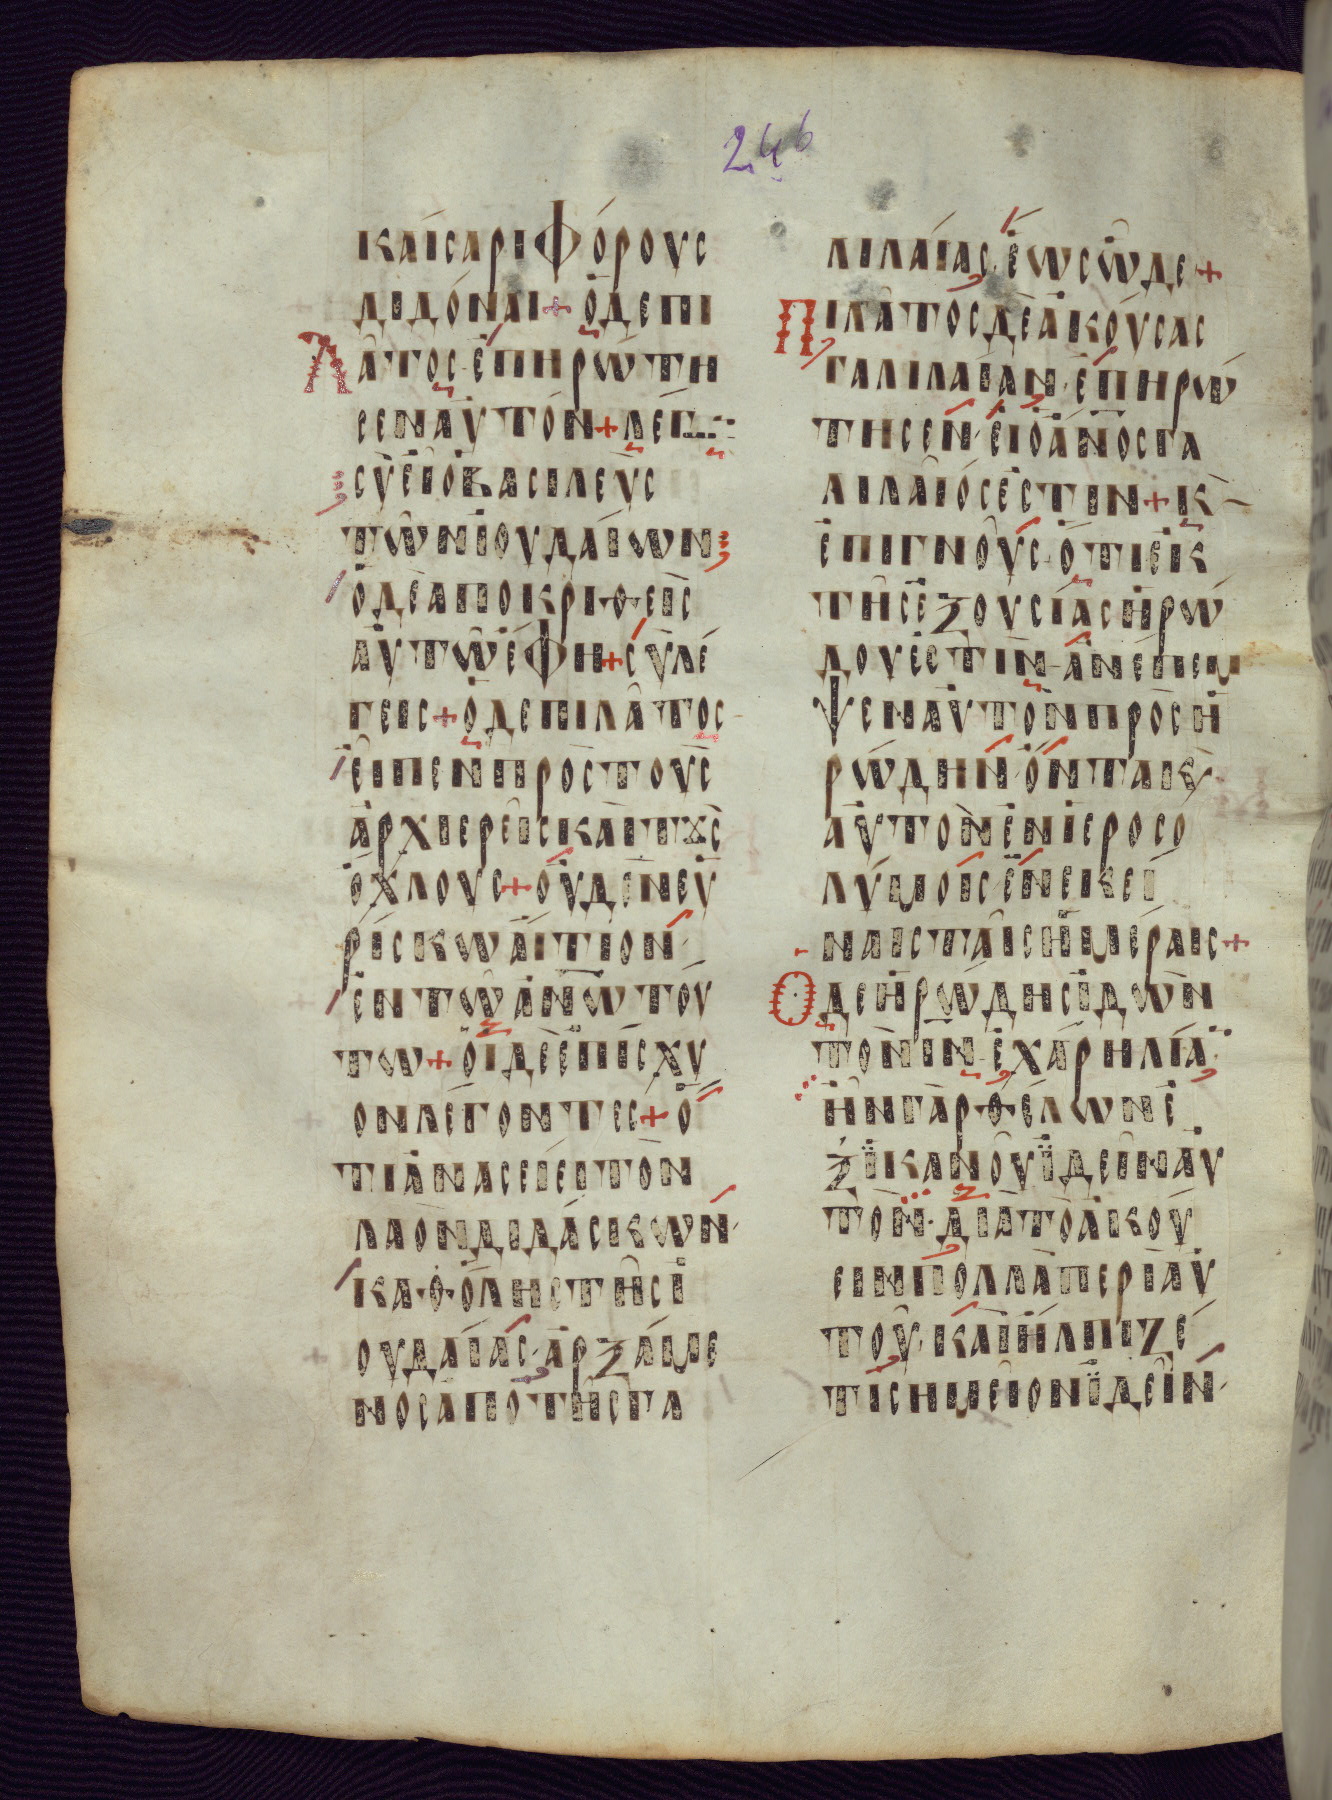 246
ΚΑΊΣΑΡΙ ΦΌΡΟΥΣ
ΔΙΔΌΝΑΙ + Ὁ ΔΕ ΠΙ
ΛᾶΤΟΣ ἘΠΗΡΏΤΗ
ΣΕΝ ΑὐΤΌΝ + ΛΈΓ
ΣῪ ΕἾ Ὁ ΒΑΣΙΛΕῪΣ
ΤῶΝ ἸΟΥΔΑΊΩΝ
Ὁ ΔῈ ἈΠΟΚΡΙΘΕῚΣ
ΑὐΤῶ ἜΦΗ + ΣῪ ΛΈ
ΓΕΙΣ + Ὁ ΔΕ ΠΙΛᾶΤΟΣ
ΕἾΠΕΝ ΠΡῸΣ ΤΟῪΣ
ἈΡΧΙΕΡΕῖΣ ΚΑῚ Τ̀ΧΣ
ὌΧΛΟΥΣ + ΟὐΔῈΝ Εὑ
ΡΊΣΚΩ ΑἼΤΙΟΝ
ἘΝ Τῶ ἈΝ̅Ω ΤΟΎ
ΤΩ + ΟἹ ΔῈ ἘΠΊΣΧΥ
ΟΝ ΛΈΓΟΝΤΕΣ + Ὅ
ΤΙ ἈΝΑΣΕΊΕΙ ΤῸΝ
ΛΑῸΝ ΔΙΔΆΣΚΩΝ
ΚΑΘ ὍΛΗΣ ΤῆΣ Ἰ
ΟΥΔΑΊΑΣ ἈΡΞΆΜΕ
ΝΟΣ ἈΠῸ ΤῆΣ ΓΑ
ΛΙΛΑΊΑΣ ἝΩΣ ὯΔΕ +
ΠΙΛᾶΤΟΣ ΔῈ ἈΚΟΎΣΑΣ
ΓΑΛΙΛΑΊΑΝ ἘΠΗΡΏ
ΤΗΣΕΝ ΕἸ Ὁ ἈΝ̅ΟΣ ΓΑ
ΛΙΛΑῖΌΣ ἘΣΤΙΝ + Κ̀
ἘΠΙΓΝΟῪΣ ὍΤΙ ἘΚ
ΤῆΣ ἘΞΟΥΣΊΑΣ ἩΡΏ
ΔΟΥ ἘΣΤῚΝ ἈΝΈΠΕΜ
ΨΕΝ ΑὐΤῸΝ ΠΡῸΣ Ἡ
ΡΏΔΗΝ ὌΝΤΑ Κ̀
ΑὐΤῸΝ ἘΝ ἹΕΡΟΣΟ
ΛΎΜΟΙΣ ἘΝ ἘΚΕΊ
ΝΑΙΣ ΤΑῖΣ ἩΜΈΡΑΙΣ +
Ὁ ΔΕ ἩΡΏΔΗΣ ἸΔῺΝ
ΤῸΝ Ι̅Ν ἘΧΆΡΗ ΛΊΑ
ἮΝ ΓᾺΡ ΘΈΛΩΝ Ἐ
Ξ ἹΚΑΝΟῦ ἸΔΕῖΝ Αὐ
ΤῸΝ ΔΙᾺ ΤῸ ἈΚΟΎ
ΕΙΝ ΠΟΛΛᾺ ΠΕΡῚ ΑὐΥ
ΤΟῦ ΚΑῚ ἬΛΠΙΖΈ
ΤΙ ΣΗΜΕῖΟΝ ἸΔΕῖΝ